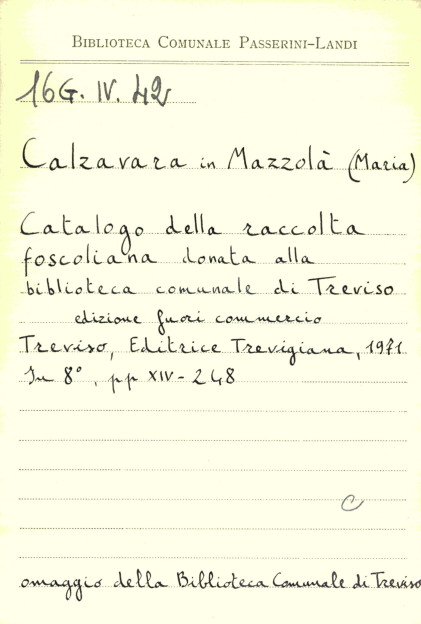 BIBLIOTECA COMUNALE PASSERINI-LANDI
16G. IV. 42
Calzavara in Mazzolà (Maria)
Catalogo della raccolta
foscoliana donata alla
biblioteca comunale di Treviso
edizione fuori commercio
Treviso, Editrice Trevigiana, 1971
In 8°, pp XIV-248
C
omaggio della Biblioteca Comunale di Treviso